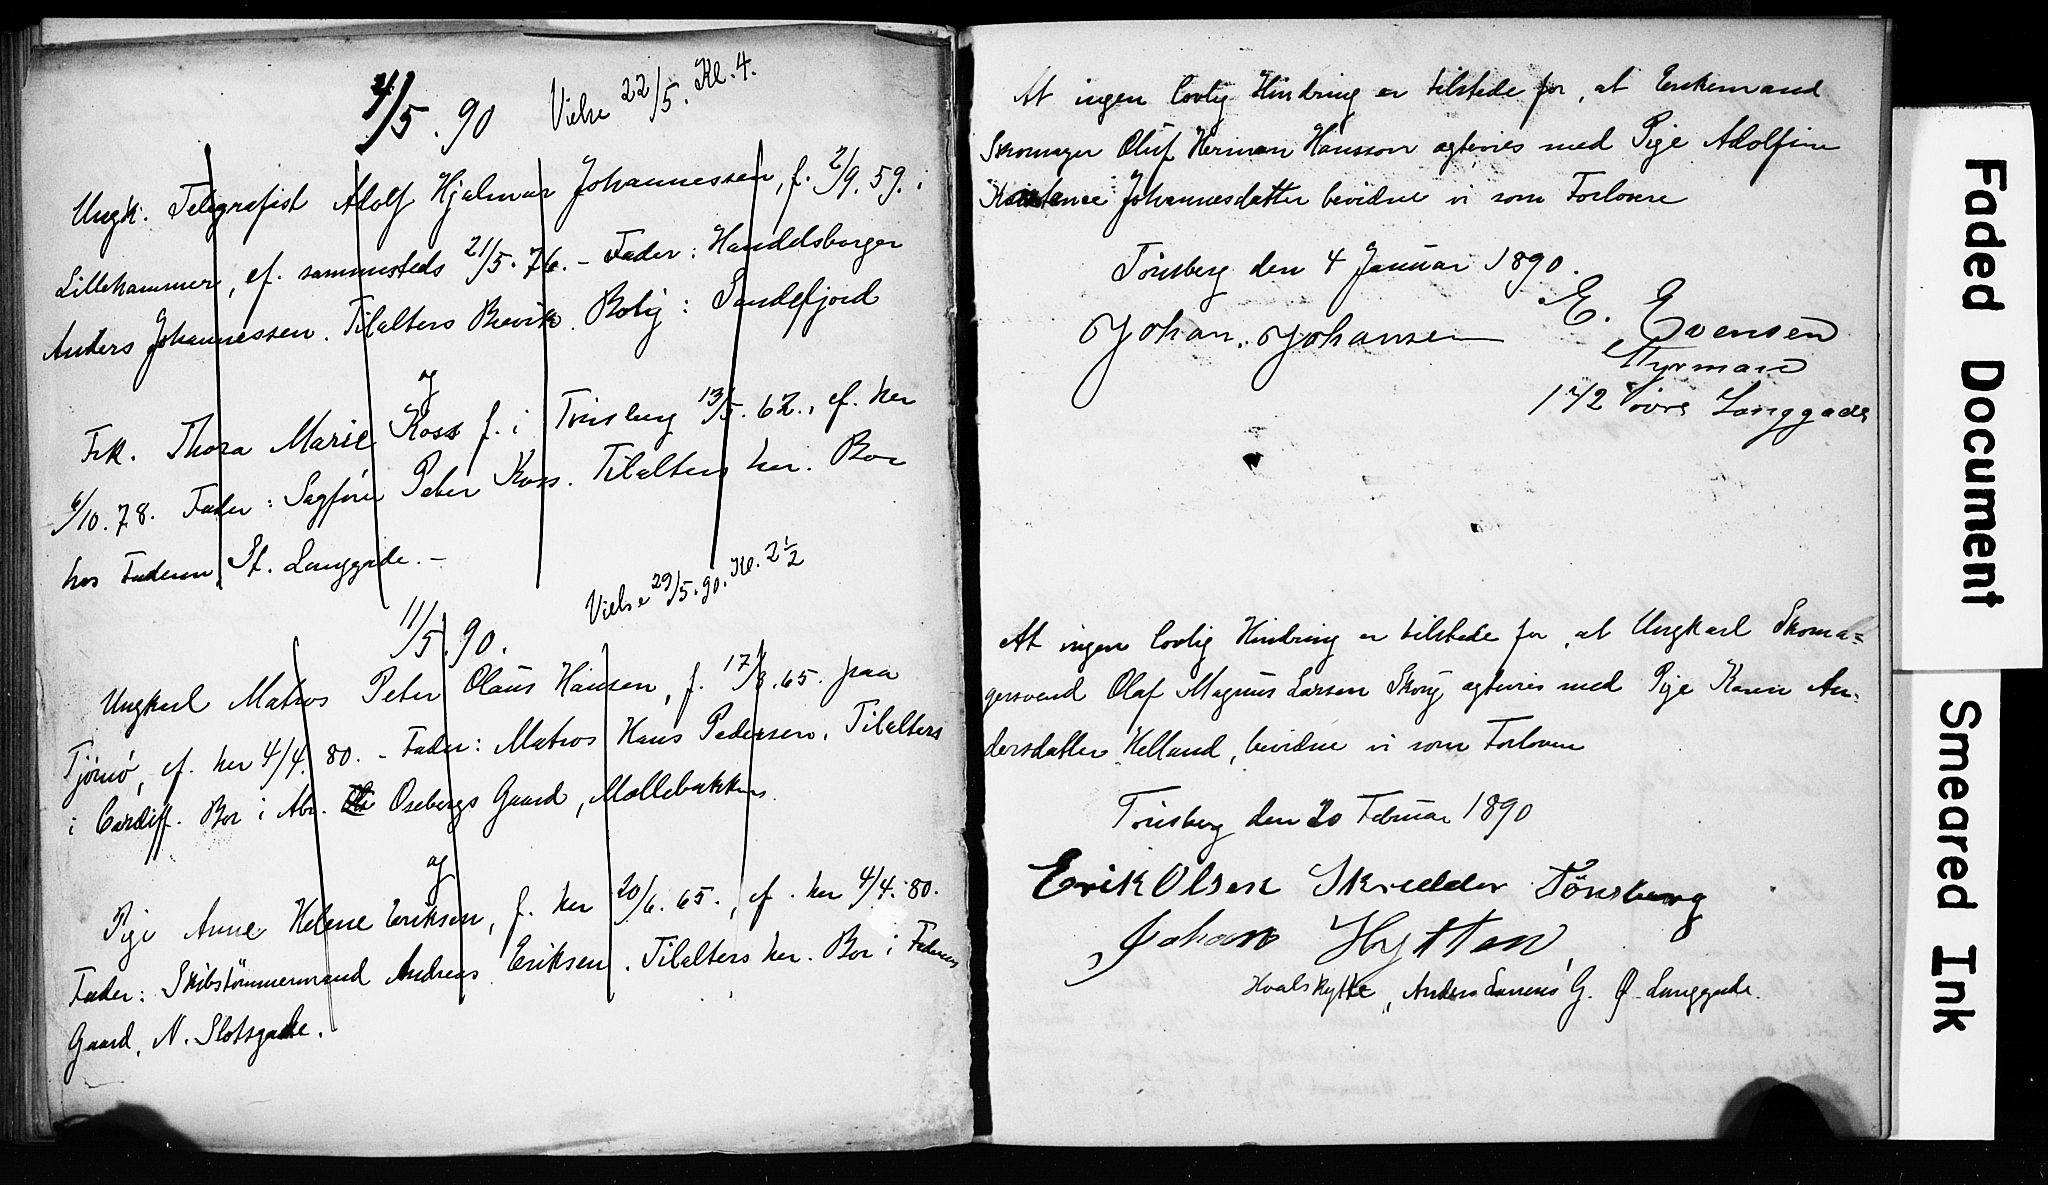 4/5. 90 Vielse 22/5. Kl. 4.
Ungk. Telegrafist Adolf Hjalmar Johannessen, f. 2/9. 59. i
Lillehammer, cf. sammesteds 21/5. 76. - Fader: Handelsborger
Anders Johannessen. Tilalters Brevik. Bolig: Sandefjord
og
Frk. Thora Marie Koss f. i Tönsberg 13/5. 62., cf. her
6/10. 78. Fader: Sagförer Peter Koss. Tilalters her. Bor
hos Faderen St. Langgade. -
11/5. 90. Vielse 29/5. 90. Kl. 2 1/2
Ungkarl Matros Peter Olaus Hansen, f. 17/8. 65. paa
Tjömö, cf. her 4/4. 80. - Fader: Matros Hans Pedersen. Tilalters
i Cardiff. Bor i Abr. Osebergs Gaard, Möllebakken.
og
Pige Anne Helene Eriksen, f. her 20/6. 65., cf. her 4/4. 80.
Fader: Skibstömmermand Andreas Eriksen. Tilalters her. Bor i Faderens
Gaard, N. Slotsgade.
At ingen lovlig Hindring er tilstede for, at Enkemand
Skomager Oluf Herman Hansson agtevies med Pige Adolfine
Konstance Johannesdatter bevidne vi som Forlovere
Tönsberg den 4 Januar 1890.
Johan. Johansen E. Evensen
Styrmand
172 övre Langgade
At ingen lovlig Hindring er tilstede for, at Ungkarl Skoma=
gersvend Olaf Magnus Larsen Skoug agtevies med Pige Karen An-
dersdatter Helland, bevidne vi som Forlovere
Tönsberg den 20 Februar 1890
Erik Olsen Skredder Tönsberg
Johan Hytten
Hvalskytte, Anders G. Ø. Langgade.
Faded Document
Smeared Ink